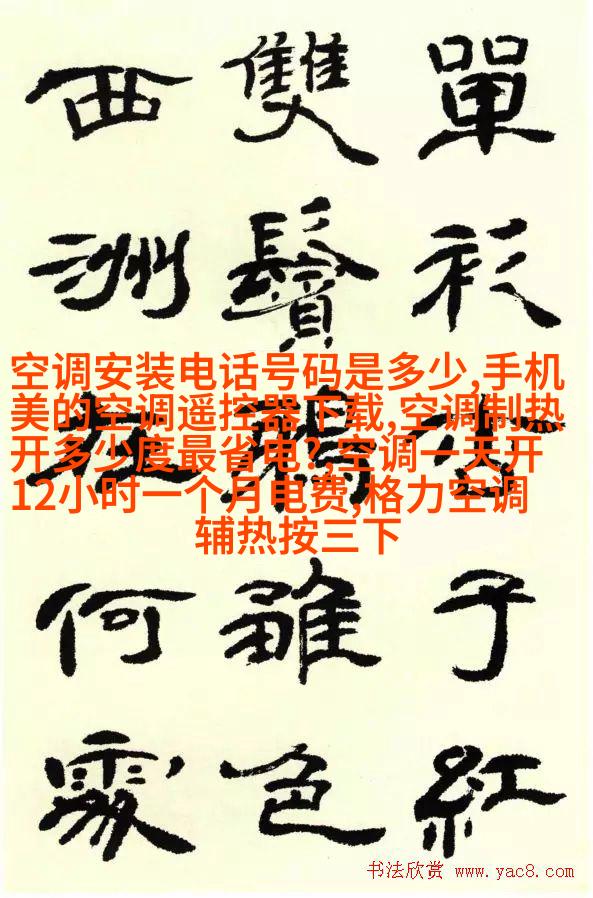 單衫杏子紅
雙鬢鴉雛色
西洲在何處
空调安装电话号码是多少,手机
美的空调遥控器下载,空调制热
开多少度最省电?,空调一天开
12小时一个月电费,格力空调
辅热按三下
书法欣赏 www.yac8.com